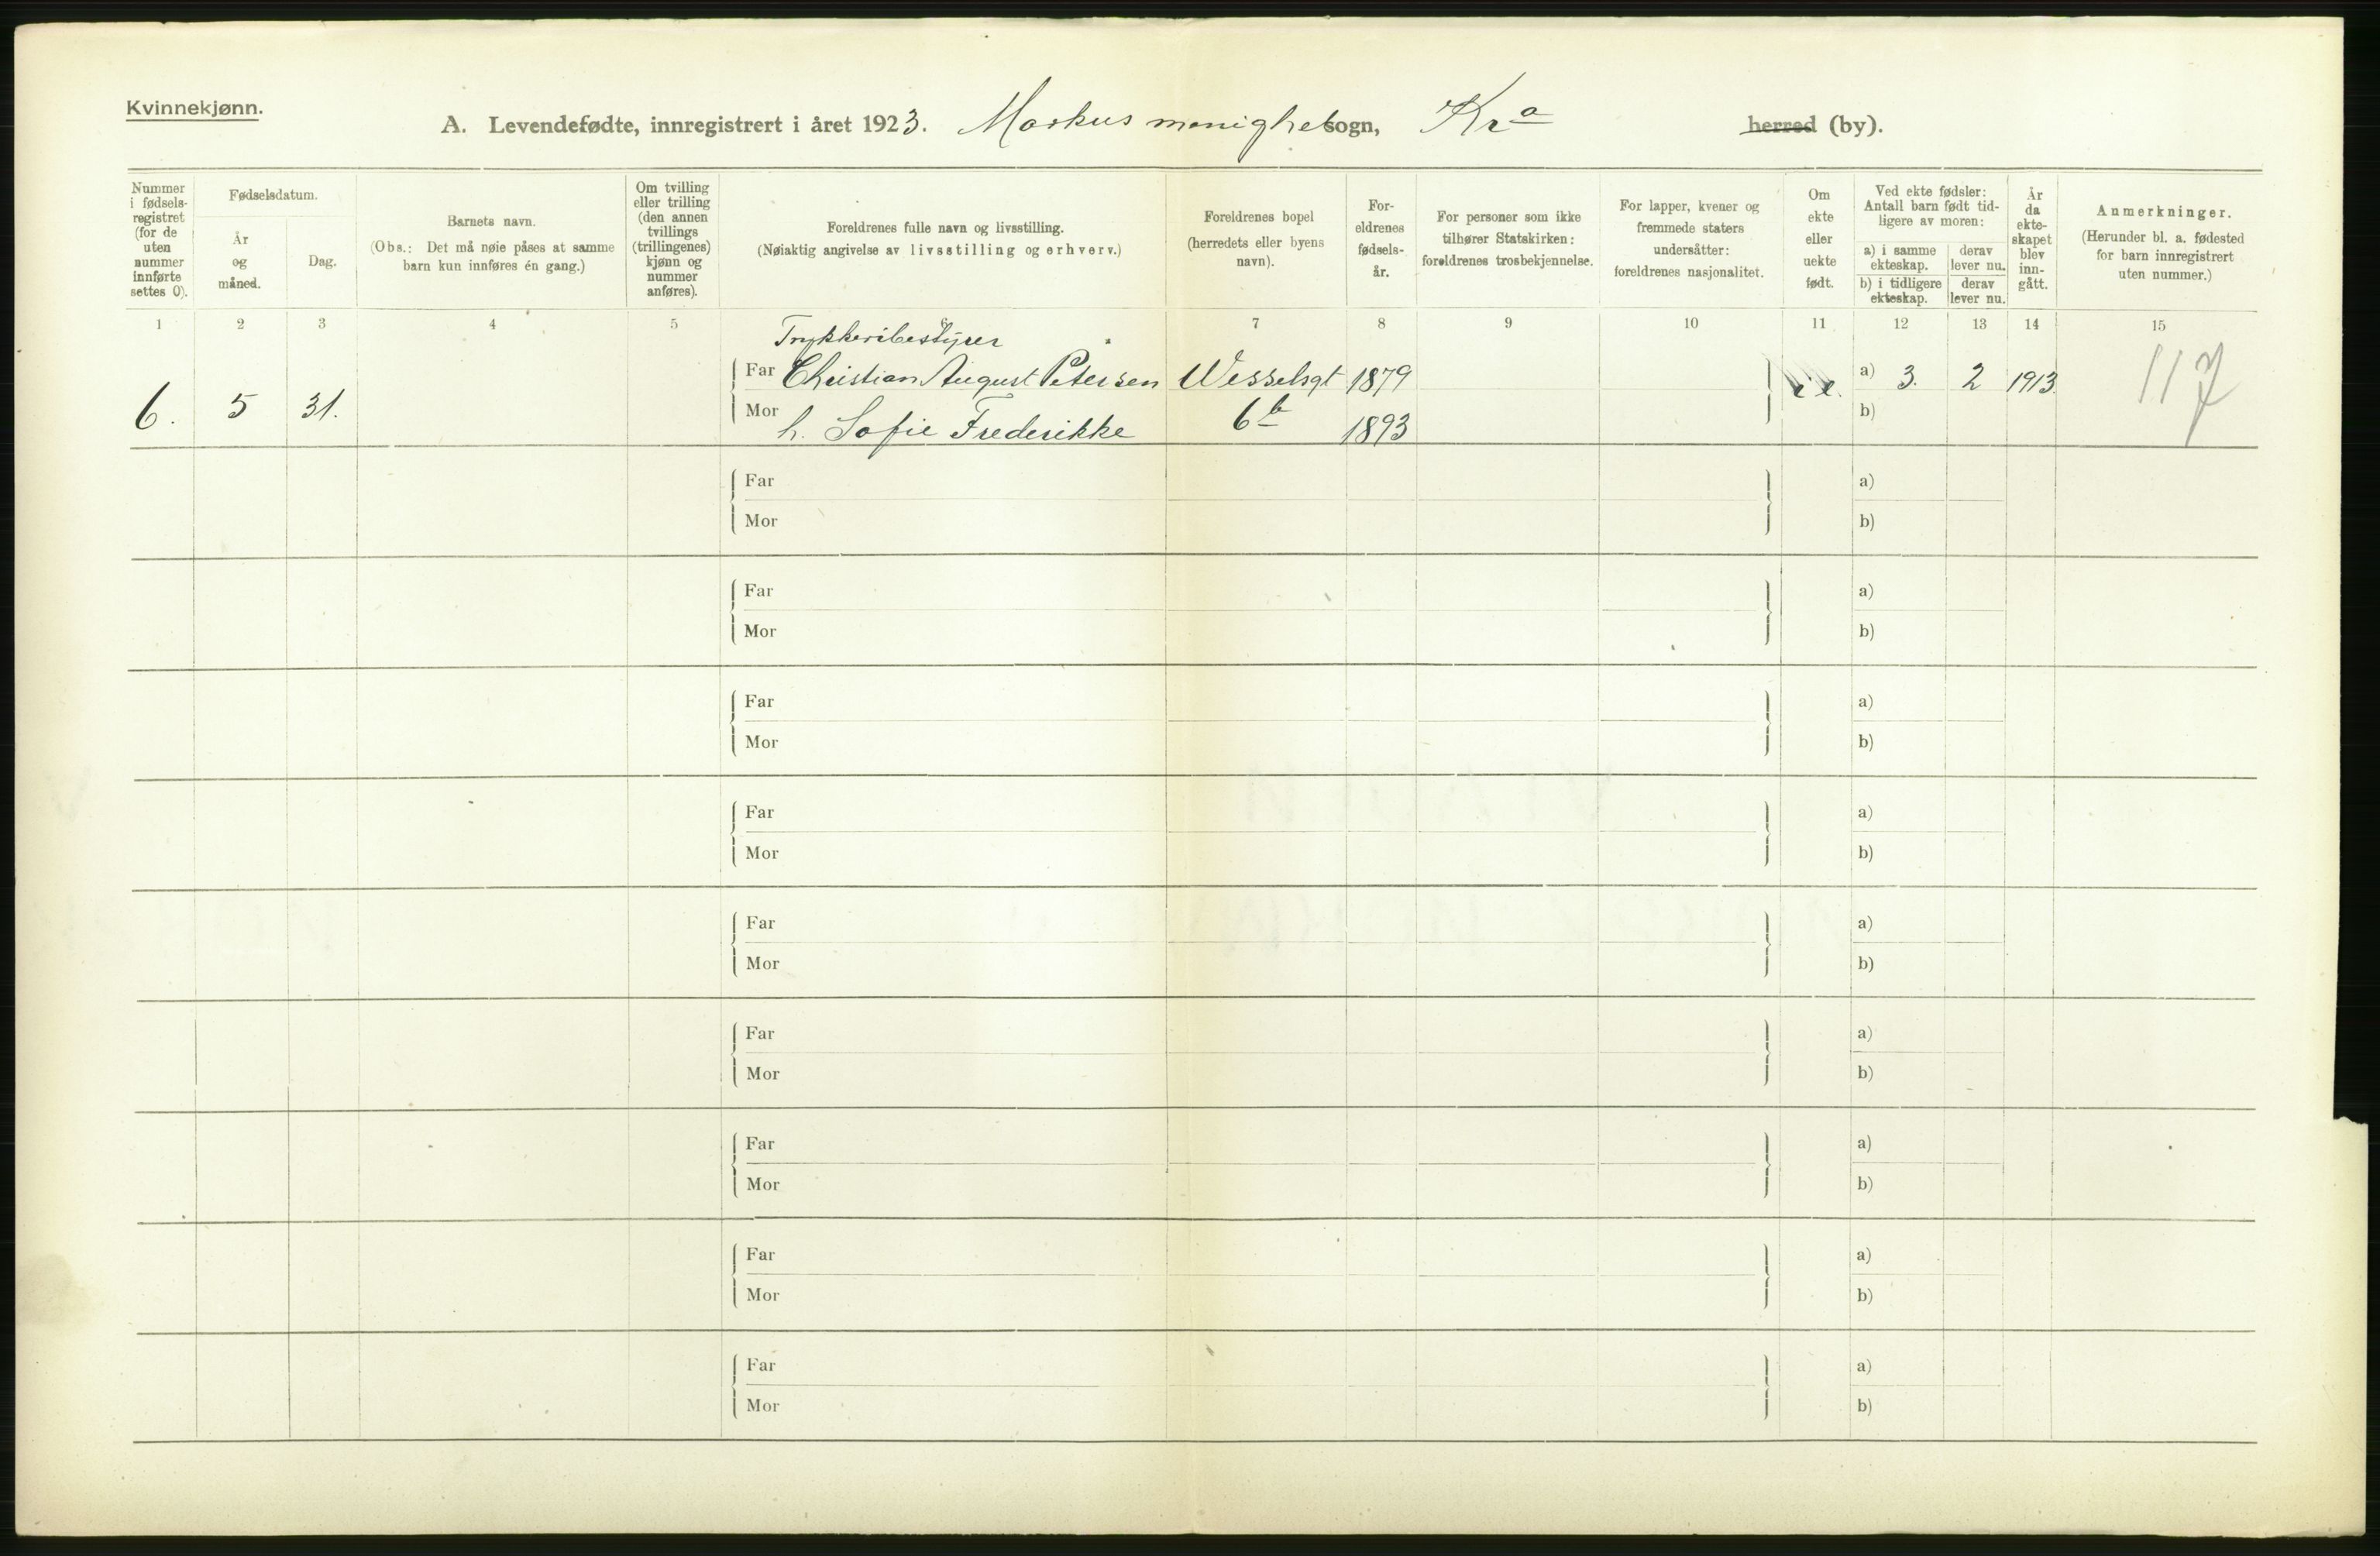 Kvinnekjønn.
A. Levendefødte, innregistrert i året 1923. Markus menighet sogn, Kra herred (by).
Nummer i fødsels-registret (for de uten nummer innførte settes 0).
Fødselsdatum.
År og måned.
Dag.
Barnets navn.
(Obs.: Det må nøie påses at samme barn kun innføres én gang.)
Om tvilling eller trilling (den annen tvillings (trillingenes) kjønn og nummer anføres).
Foreldrenes fulle navn og livsstilling.
(Nøiaktig angivelse av livsstilling og erhverv.)
Foreldrenes bopel (herredets eller byens navn).
For-eldrenes fødsels-år.
For personer som ikke tilhører Statskirken: foreldrenes trosbekjennelse.
For lapper, kvener og fremmede staters undersåtter: foreldrenes nasjonalitet.
Om ekte eller uekte født.
Ved ekte fødsler: Antall barn født tid-ligere av moren:
a) i samme ekteskap.
derav lever nu.
b) i tidligere ekteskap.
derav lever nu.
År da ekte-skapet blev inn-gått.
Anmerkninger.
(Herunder bl. a. fødested for barn innregistrert uten nummer.)
1 2 3 4 5 7 8 9 10 11 12 13 14 15
Trykkeribestyrer
Far Christian August Petersen Wesselsgt 1879 e. a) 3. 2 1913. 117
6. 5 31.
Mor h. Sofie Frederikke 6b 1893 b)
Far a)
Mor b)
Far a)
Mor b)
Far a)
Mor b)
Far a)
Mor b)
Far a)
Mor b)
Far a)
Mor b)
Far a)
Mor b)
Far a)
Mor b)
Far a)
Mor b)